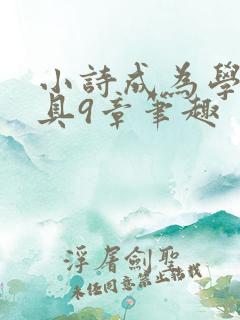 小詩成為學
具9章筆趣
浮屠劍聖
未经同意禁止转载